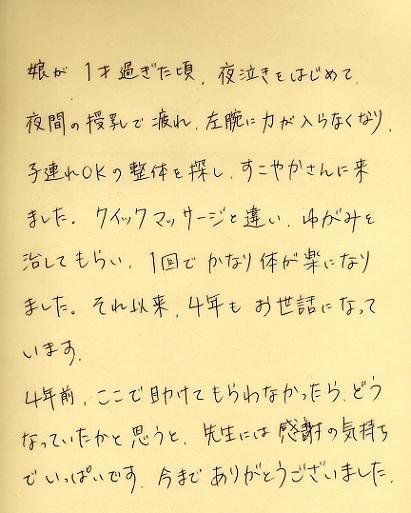 娘が 1才過ぎた頃、夜泣きをはじめて、
夜間の授乳で疲れ、左腕に力が入らなくなり、
子連れOKの整体を探し、すこやかさんに来
ました。クイックマッサージと違い、ゆがみを
治してもらい、1回でかなり体が楽になり
ました。それ以来、4年もお世話になって
います。
4年前、ここで助けてもらわなかったら、どう
なっていたかと思うと、先生には感謝の気持ち
でいっぱいです。今までありがとうございました。